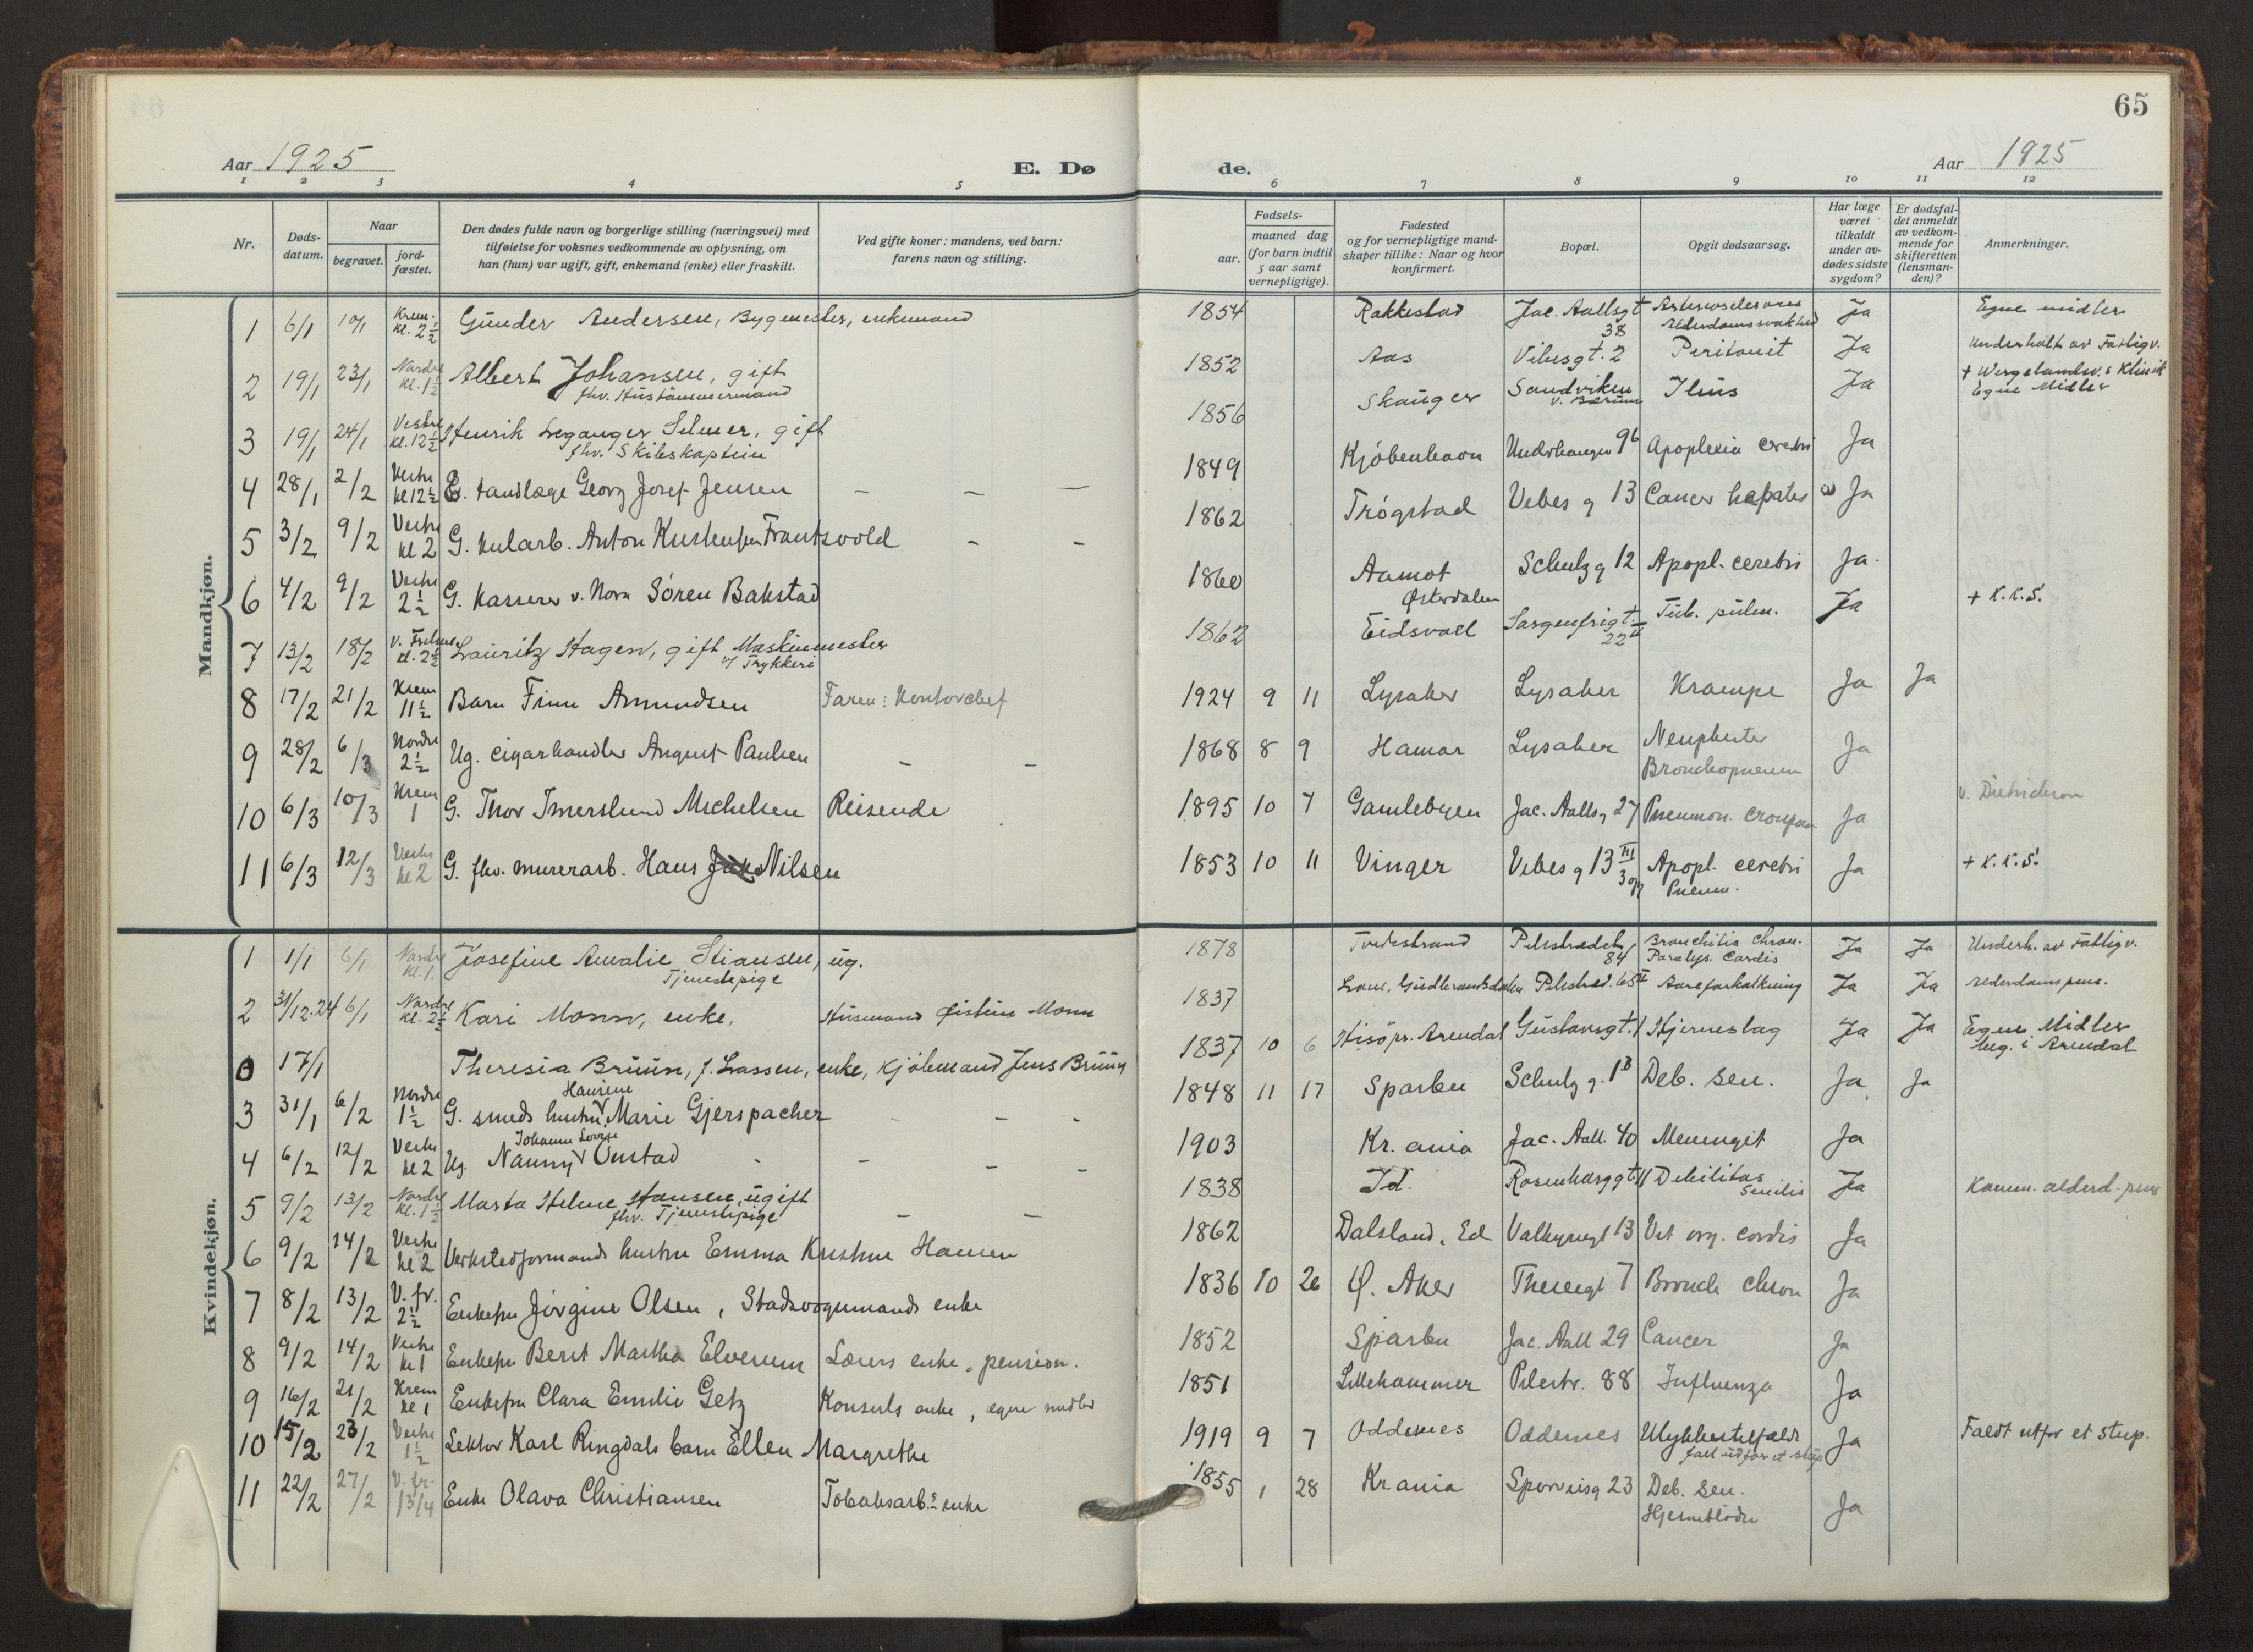 65
Aar 1925
E. Dø
de.
Aar 1925
1 2 3 4 5 6 7 8 9 10 11 12
Nr.
Døds-
datum.
Naar
begravet.
jord-
fæstet.
Den dødes fulde navn og borgerlige stilling (næringsvei) med
tilføielse for voksnes vedkommende av oplysning, om
han (hun) var ugift, gift, enkemand (enke) eller fraskilt.
Ved gifte koner: mandens, ved barn:
farens navn og stilling.
Fødsels-
aar.
maaned dag
(for barn indtil
5 aar samt
vernepligtige).
Fødested
og for vernepligtige mand-
skaper tillike: Naar og hvor
konfirmert.
Bopæl.
Opgit dødsaarsag.
Har læge
været
tilkaldt
under av-
dødes sidste
sygdom?
Er dødsfal-
det anmeldt
av vedkom-
mende for
skifteretten
(lensman-
den)?
Anmerkninger.
Mandkjøn.
1 6/1 10/1 Krem. kl. 2½ Gunder Andersen, Bygmester, enkemand 1854 Rakkestad Jac. Aallsgt 38 Arteriosclerosis Alderdomssvakhed Ja Egne midler
2 19/1 23/1 Nordre kl. 1½ Albert Johansen, gift 1852 Aas Vibesgt. 2 Peritonit Ja Underholdt av Fattigv.
fhv. Hustømmermand
3 19/1 24/1 Vestre kl. 12½ Henrik Leganger Selmer, gift 1856 Skauger Sandviken v. Bærum Ileus Ja + Wergelandsv.s Klinik Egne Midler
fhv. Skibskaptein
4 28/1 2/2 Vestre kl 12½ E. tandlæge Georg Josef Jensen — — — 1849 Kjøbenhavn Underhaugsv 9b Apoplexia cerebri Ja
5 3/2 9/2 Vestre kl 2 G. kularb. Anton Kristensen Frantsvold - - 1862 Trøgstad Vibes g 13 Cancer hepatis Ja
6 4/2 9/2 Vestre 2½ G. kasserer v. Nora Søren Bakstad 1860 Aamot Østerdalen Schulz g 12 Apopl. cerebri Ja.
7 13/2 18/2 V. Frelsers kl. 2½ Lauritz Hagen, gift Maskinmester v/ Trykkeri 1862 Eidsvoll Sorgenfrigt. 22 II Tub. pulm. Ja + K.K.S.
8 17/2 21/2 Krem 11½ Barn Finn Amundsen Faren: Kontorchef 1924 9 11 Lysaker Lysaker Krampe Ja Ja
9 28/2 6/3 Nordre 2½ Ug. cigarhandler August Paulsen - - 1868 8 9 Hamar Lysaker Bronchopneum Ja
10 6/3 10/3 Krem 1 G. Thor Imerslund Michelsen Reisende 1895 10 7 Gamlebyen Jac. Aalls g 27 Pneumon. croupøs Ja v. Dietrichson
11 6/3 12/3 Vestre kl 2 G. fhv. murerarb. Hans Nilsen 1853 10 11 Vinger Vibes g 13 III 3 opg Apopl. cerebri Pneum. Ja + K.K.S.
Kvindekjøn.
1 1/1 6/1 Nordre kl. 1. Josefine Amalie Stiansen, ug. 1878 Tvedestrand Pilestrædet 84 Bronchitis chron. Paralys. Cordis Ja Ja Underh. av Fattigv.
Tjenestepige
2 31/12.24 6/1 Nordre kl. 2½ Kari Monn, enke, Husmand Øistein Monn 1837 Lom, Gudbrandsdalen Pilestræd. 65 II Aareforkalkning Ja Ja Alderdoms pens.
0 17/1 Theresia Bruun, f. Lassen, enke, Kjøbmand Jens Bruun 1837 10 6 Hisø pr. Arendal Gustavsgt. 1 Hjerneslag Ja Ja Egne Midler beg. i Arendal
3 31/1 6/2 Nordre 1½ G. smeds hustru Hansine Marie Gjerspacher - - - 1848 11 17 Sparbu Schulz g. 1B Deb. sen. Ja Ja
4 6/2 12/2 Vestre kl 2 Ug. Nanny Johanne Lovise Onstad - - - - 1903 Kr.ania Jac. Aall. 40 Meningit Ja
5 9/2 13/2 Nordre kl. 1½ Marta Helene Hansen, ugift - - 1838 Id. Rosenborggt. 11 Debilitas Senilis Ja Komm. alderd. pens
fhv. Tjenestepige
6 9/2 14/2 Vestre kl 2 Verkstedformands hustru Emma Kristine Hansen 1862 Dalsland, Ed Valkyriegt 13 Vit org. cordis Ja
7 8/2 13/2 V. fr. 2½ Enkefru Jørgine Olsen, Stadsvognmands enke 1836 10 26 Ø. Aker Theresegt 7 Bronch chron Ja
8 9/2 14/2 Vestre kl 1 Enkefru Beret Martha Elverum Lærers enke, pension. 1852 Sparbu Jac. Aall 29 Cancer Ja
9 16/2 21/2 Krem kl 1 Enkefru Clara Emilie Getz Konsuls enke, egne midler 1851 Lillehammer Pilestr. 88 Influenza Ja
10 15/2 23/2 Vestre 1½ Lektor Karl Ringdals barn Ellen Margrethe 1919 9 7 Oddernes Oddernes Ulykkestilfælde fall utfor et stup Ja Faldt utfor et stup.
11 22/2 27/2 V. fr. 13/4 Enke Olava Christiansen Tobaksarb.s enke 1855 1 28 Kr.ania Sporveisg 23 Deb. Sen. Hjerneblødn Ja